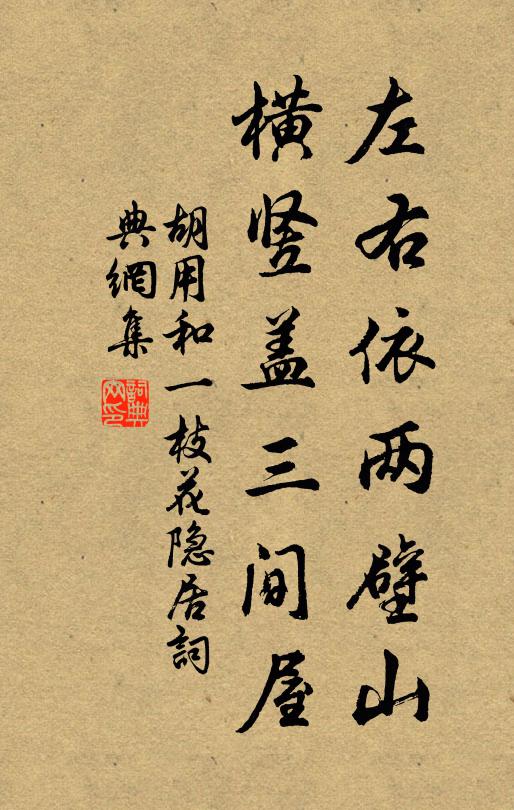 左右依两壁山
横竖盖三间屋
胡用和一枝花隐居詞
典網集
詞典網印